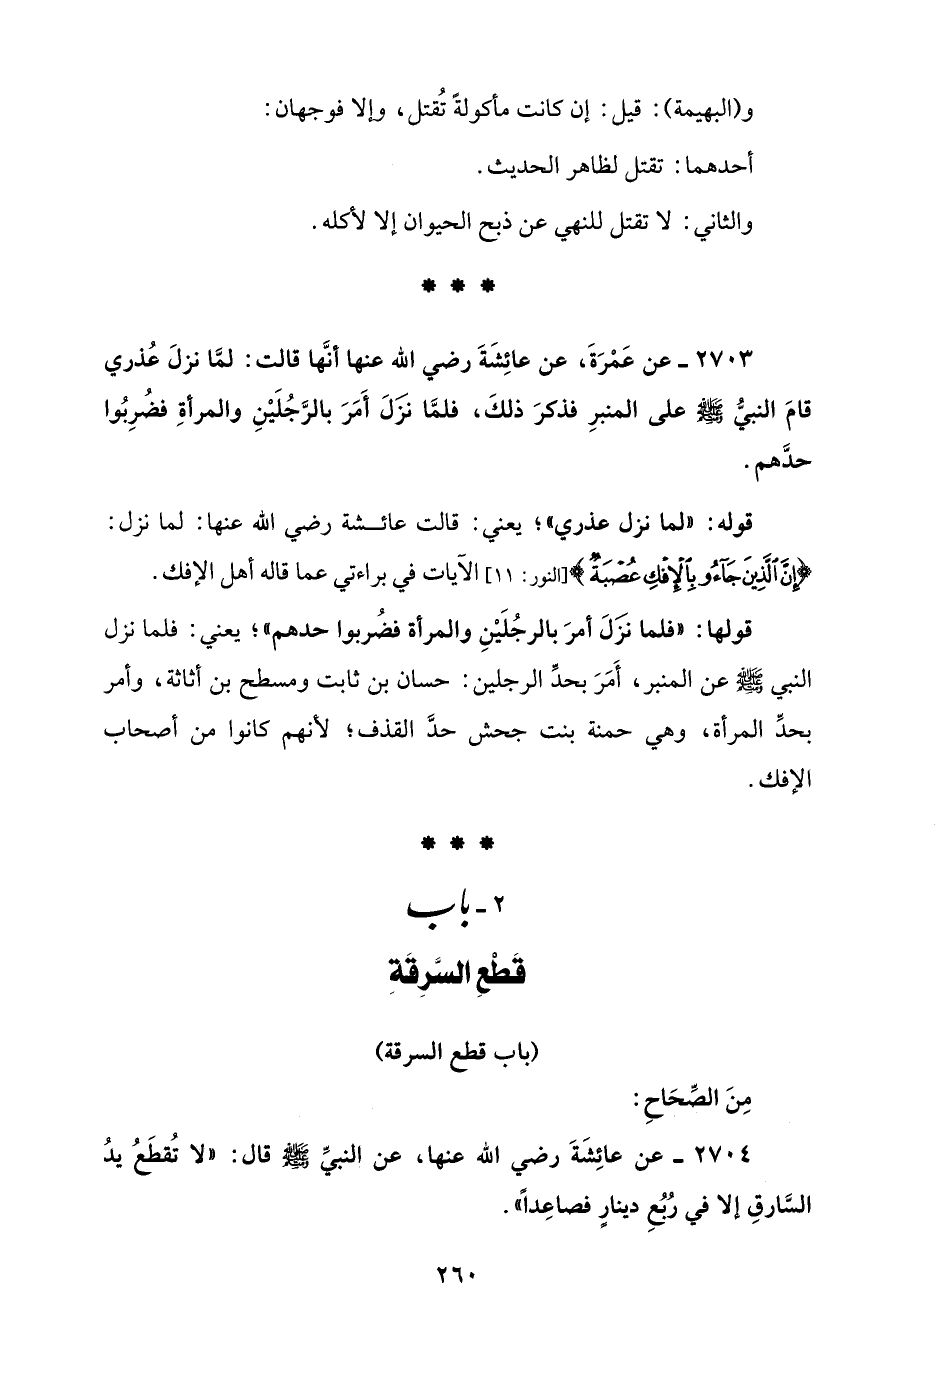 و(البهيمة): قيل: إن كانت مأكولةً تُقتل، وإلا فوجهان:
أحدهما: تقتل لظاهر الحديث.
والثاني: لا تقتل للنهي عن ذبح الحيوان إلا لأكله.
* * *
٢٧٠٣ ـ عن عَمْرَةَ، عن عائِشَةَ رضي الله عنها أنَّها قالت: لمَّا نزلَ عُذري
قامَ النبيُّ ﷺ على المنبرِ فذكرَ ذلكَ، فلمَّا نزَلَ أَمَرَ بالرَّجُلَيْنِ والمرأةِ فضُرِبُوا
حدَّهم.
قوله: «لما نزل عذري»؛ يعني: قالت عائــشة رضي الله عنها: لما نزل:
﴿إِنَّ ٱلَّذِينَ جَآءُو بِٱلْإِفْكِ عُصْبَةٌ﴾ [النور: ١١] الآيات في براءتي عما قاله أهل الإفك.
قولها: «فلما نزَلَ أمرَ بالرجُلَيْنِ والمرأة فضُربوا حدهم»؛ يعني: فلما نزل
النبي ﷺ عن المنبر، أَمَرَ بحدِّ الرجلين: حسان بن ثابت ومسطح بن أثاثة، وأمر
بحدِّ المرأة، وهي حمنة بنت جحش حدَّ القذف؛ لأنهم كانوا من أصحاب
الإفك.
* * *
٢ ـ باب
قَطْعِ السَّرِقَةِ
(باب قطع السرقة)
مِنَ الصِّحَاحِ:
٢٧٠٤ ـ عن عائِشَةَ رضي الله عنها، عن النبيِّ ﷺ قال: «لا تُقطَعُ يدُ
السَّارقِ إلا في رُبُعِ دينارٍ فصاعِداً».
٢٦٠